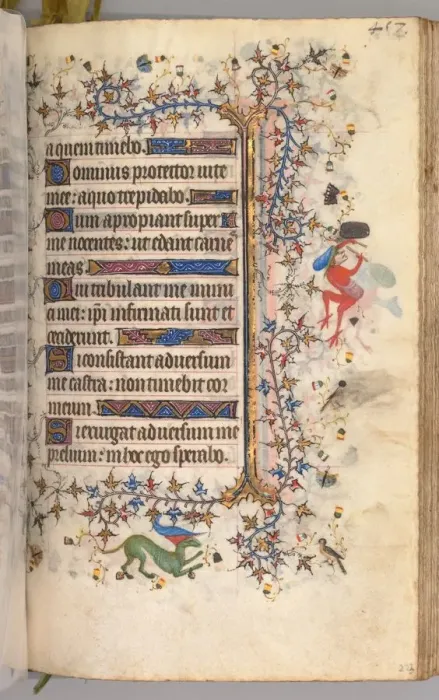 452
a quem timebo.
Dominus protector uite
mee: a quo trepidabo.
Dum apropiant super
me nocentes: ut edant carnē
meas.
Qui tribulant me inimi
ci mei: ip̄i infirmati sunt et
ceciderunt.
Si consistant aduersum
me castra: non timebit cor
meum.
Si exurgat aduersum me
prelium: in hoc ego sperabo.